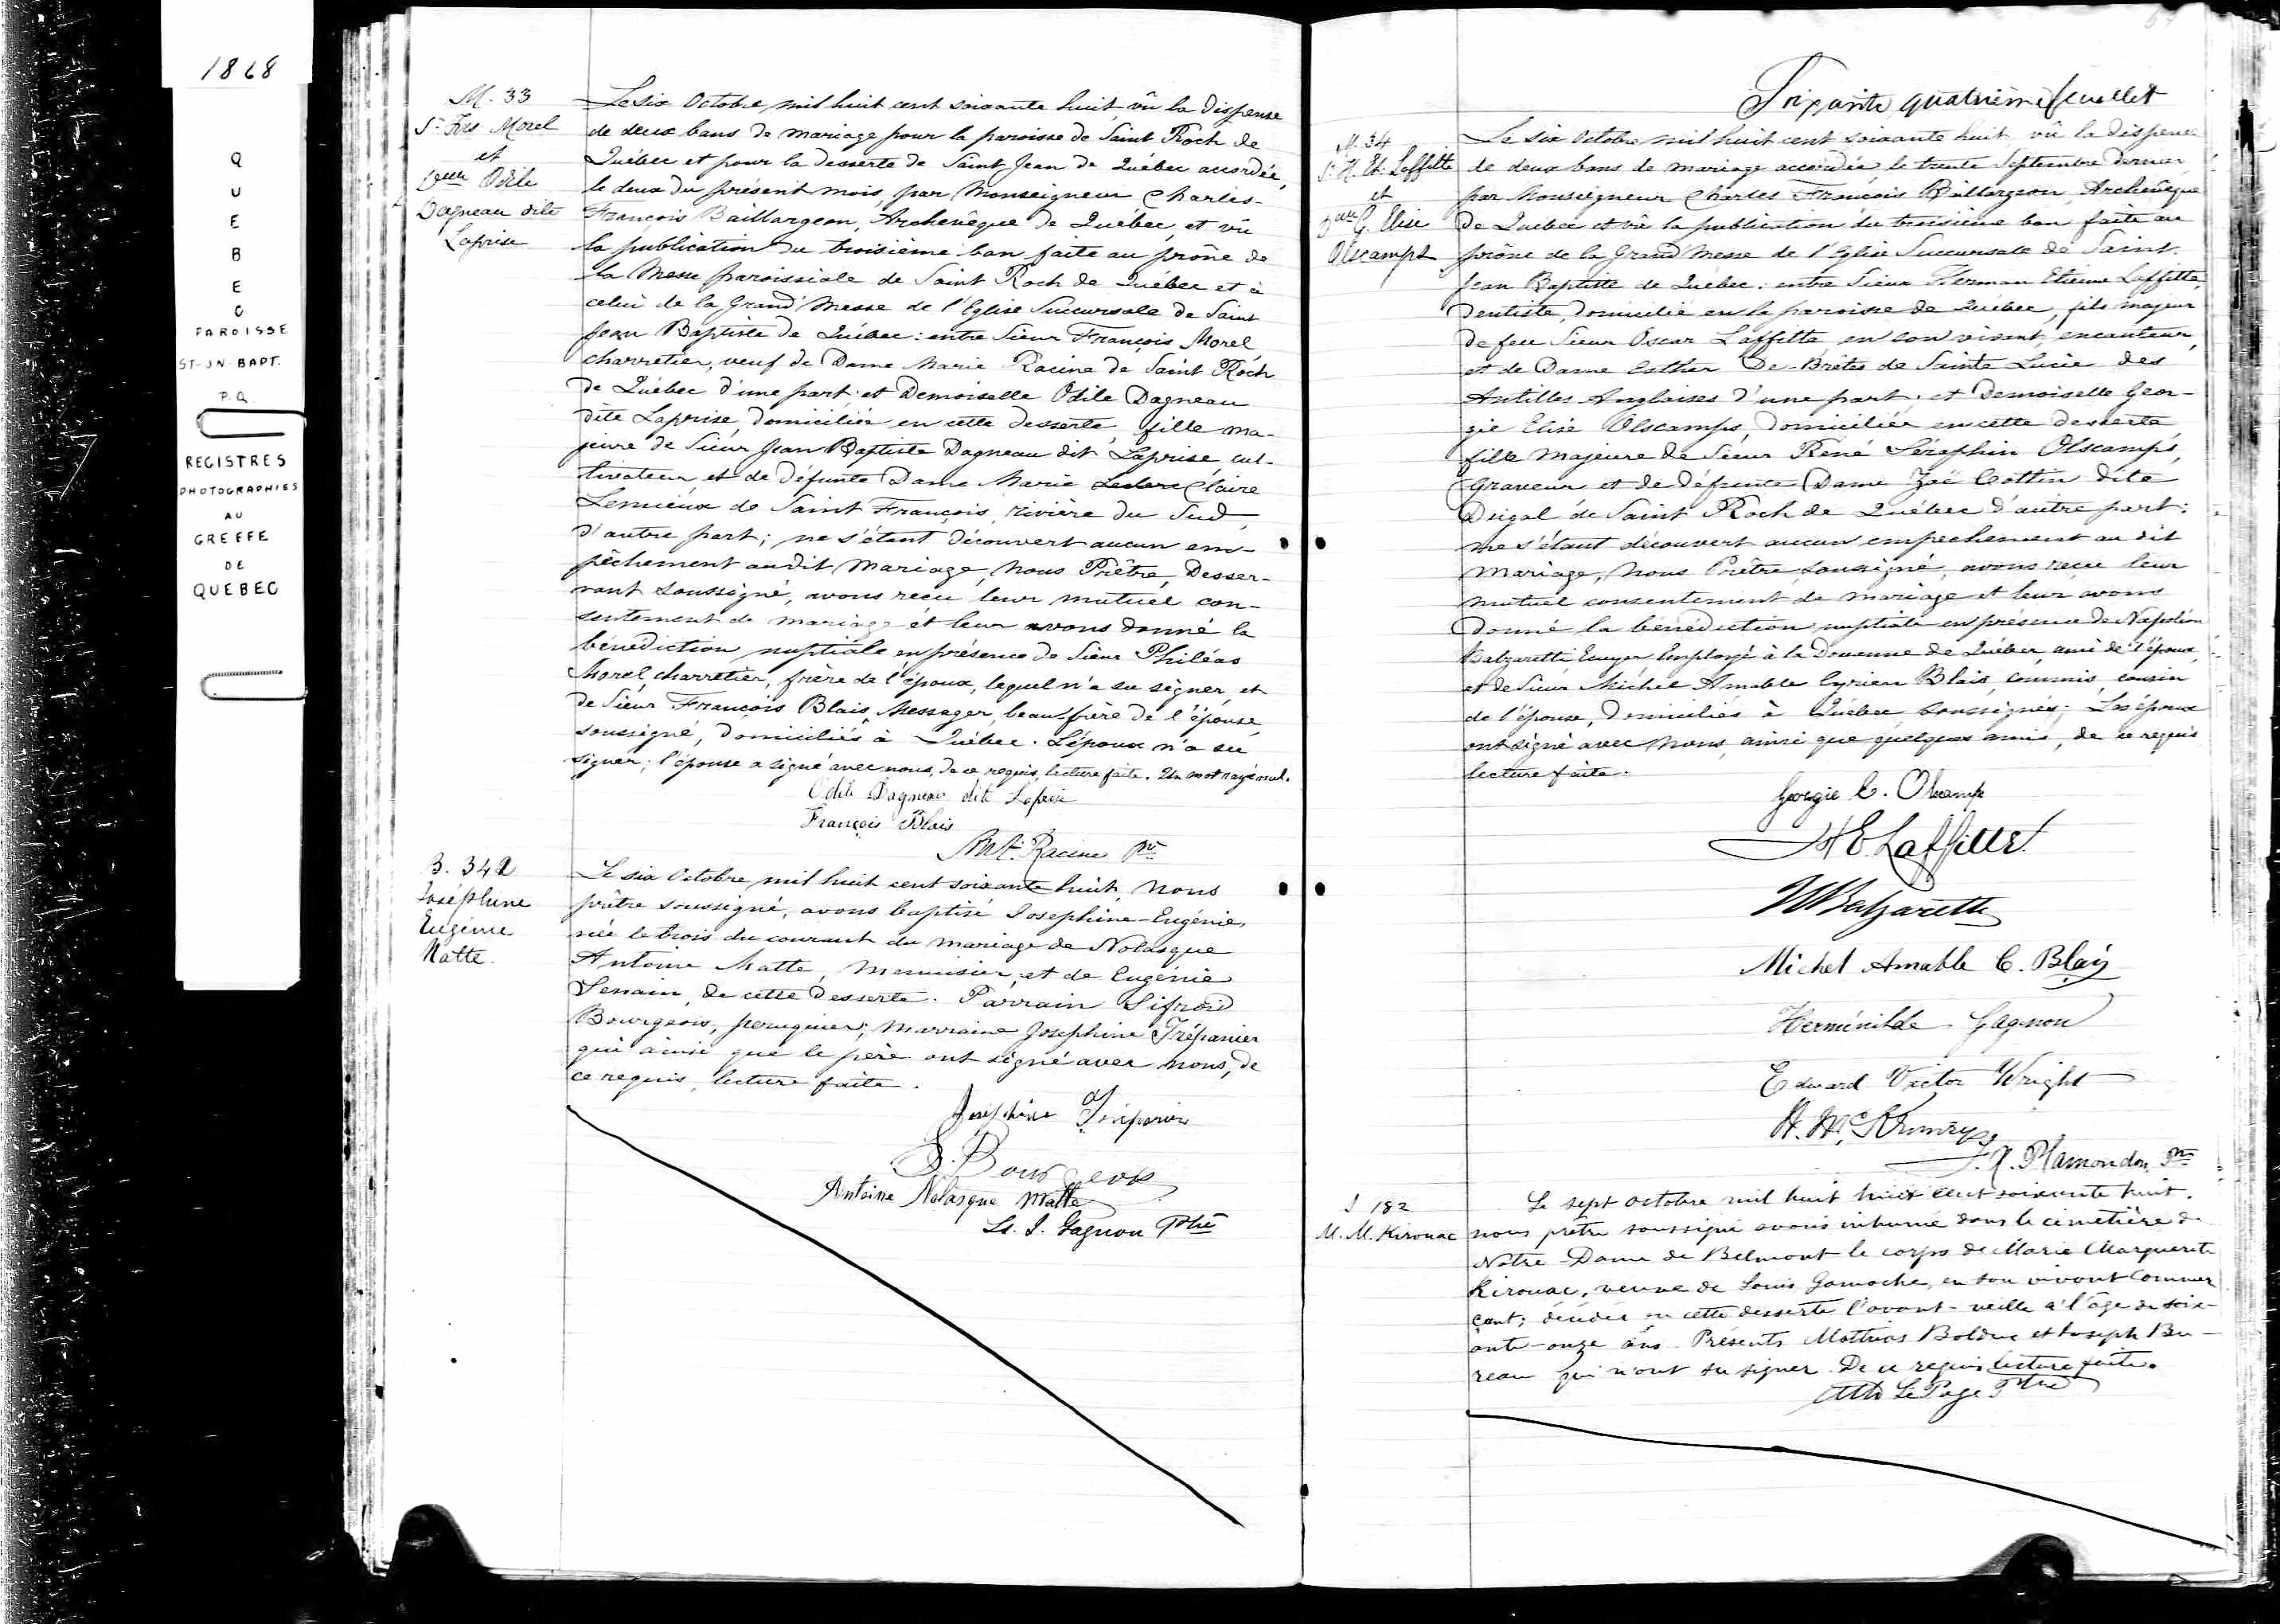 1868
QUEBEC
PAROISSE
ST-JN-BAPT.
P.Q.
REGISTRES
PHOTOGRAPHIES
AU
GREFFE
DE
QUEBEC
M. 33
Sr Frs Morel
et
Delle Odile
Dagneau dite
Laprise
Le six Octobre mil huit cent soixante huit, vû la dispense
de deux bans de mariage pour la paroisse de Saint Roch de
Québec et pour la desserte de Saint Jean de Québec accordée,
le deux du présent mois, par Monseigneur Charles-
François Baillargeon, Archevêque de Québec, et vû
la publication du troisième ban faite au prône de
la Messe paroissiale de Saint Roch de Québec et à
celui de la Grand'Messe de l'Eglise Succursale de Saint
Jean Baptiste de Québec: entre Sieur François Morel
charretier, veuf de Dame Marie Racine de Saint Roch
de Québec d'une part; et Demoiselle Odile Dagneau
dite Laprise, domiciliée en cette desserte, fille ma-
jeure de Sieur Jean Baptiste Dagneau dit Laprise, cul-
tivateur, et de défunte Dame Marie Leclerc Claire
Lemieux de Saint François, rivière du Sud,
d'autre part; ne s'étant découvert aucun em-
pêchement audit mariage, nous Prêtre, Desser-
vant soussigné, avons reçu leur mutuel con-
sentement de mariage et leur avons donné la
bénédiction nuptiale en présence de Sieur Philéas
Morel, charretier, frère de l'époux, lequel n'a su signer, et
de Sieur François Blais, Messager, beau-frère de l'épouse,
soussigné, domiciliés à Québec. L'époux n'a su
signer; l'épouse a signé avec nous, de ce requis, lecture faite. Un mot rayé nul.
Odile Dagneau dit Laprise
François Blais
Ant. Racine Ptre
B. 342
Joséphine
Eugénie
Matte.
Le six Octobre mil huit cent soixante huit, nous
prêtre soussigné, avons baptisé Josephine-Eugénie,
née le trois du courant du mariage de Nolasque
Antoine Matte, menuisier, et de Eugénie
de cette desserte. Parrain Sifroid
Bourgeois, perruquier; marraine Josephine Trépanier
qui ainsi que le père ont signé avec nous, de
ce requis, lecture faite.
Joséphine Trépanier
S. Bourgeois
Antoine Nolasque Matte
Ls. J. Gagnon Ptre
64
Soixante quatrième feuillet
M. 34
Sr H. Et. Laffitte
et
Delle G. Elise
Olscamps
Le six Octobre mil huit cent soixante huit, vû la dispense
de deux bans de mariage accordée, le trente Septembre dernier
par Monseigneur Charles François Baillargeon, Archevêque
de Québec et vû la publication du troisième ban faite au
prône de la Grand'Messe de l'Eglise Succursale de Saint
Jean Baptiste de Québec: entre Sieur Herman Etienne Laffitte,
Dentiste, domicilié en la paroisse de Québec, fils majeur
de feu Sieur Oscar Laffitte en son vivant, encanteur,
et de Dame Esther De-Brêtes de Sainte Lucie des
Antilles Anglaises d'une part; et Demoiselle Geor-
gie Elise Olscamps, domiciliée en cette desserte
fille majeure de Sieur René Séraphin Olscamps,
Graveur et de défunte Dame Zoé Cottin dite
Dugal de Saint Roch de Québec d'autre part:
ne s'étant découvert aucun empechement au dit
mariage, nous Prêtre soussigné, avons reçu leur
mutuel consentement de mariage et leur avons
donné la bénédiction nuptiale en présence de Napoléon
Balzaretti, Ecuyer, Employé à la Douanne de Québec, ami de l'époux,
et de Sieur Michel Amable Cyrien Blais, commis, cousin
de l'épouse, domiciliés à Québec, soussignés; Les époux
ont signé avec nous, ainsi que quelques amis, de ce requis
lecture faite.
Georgie E. Olscamp
H E Laffitte
N Balzaretti
Michel Amable C. Blais
Herménilde Gagnon
Edward Victor Wright
F. X. Plamondon Ptre
S 182
M. M. Kirouac
Le sept octobre mil huit huit cent soixante huit.
nous prêtre soussigné avons inhumé dans le cimetière de
Notre-Dame de Belmont le corps de Marie Marguerite
Kirouac, veuve de Louis Gamache, en son vivant Commer
çant; décédée en cette desserte l'avant-veille à l'âge de soix-
ante-onze ans. Présents Mathias Bolduc et Joseph Bu-
reau qui n'ont su signer. De ce requis lecture faite.
Le Page Ptre